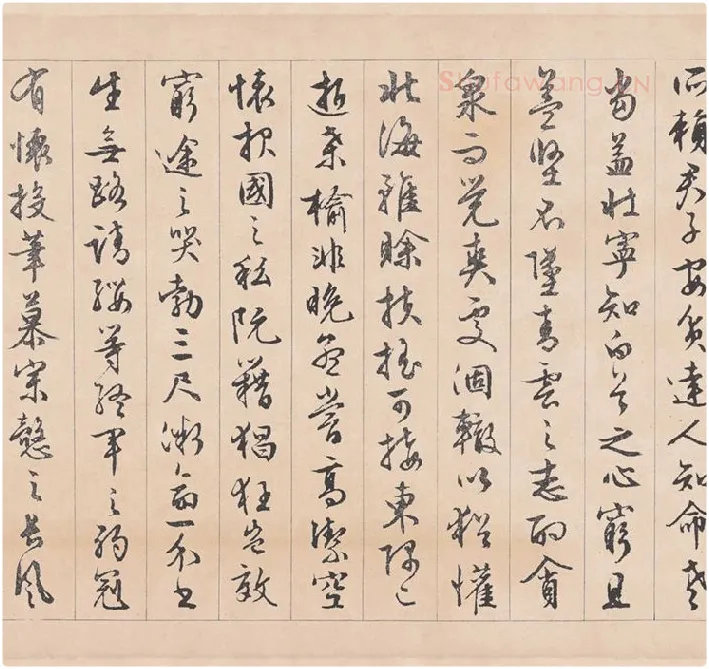 所賴君子安貧達人知命老
當益壯寧知白首之心窮且
益堅不墜青雲之志酌貪
泉而覺爽處涸轍以猶懽
北海雖賒扶搖可接東隅已
逝桑榆非晚孟嘗高潔空
懷報國之私阮籍猖狂豈效
窮途之哭勃三尺微命一介書
生無路請纓等終軍之弱冠
有懷投筆慕宗慤之長風
Shufawang.CN